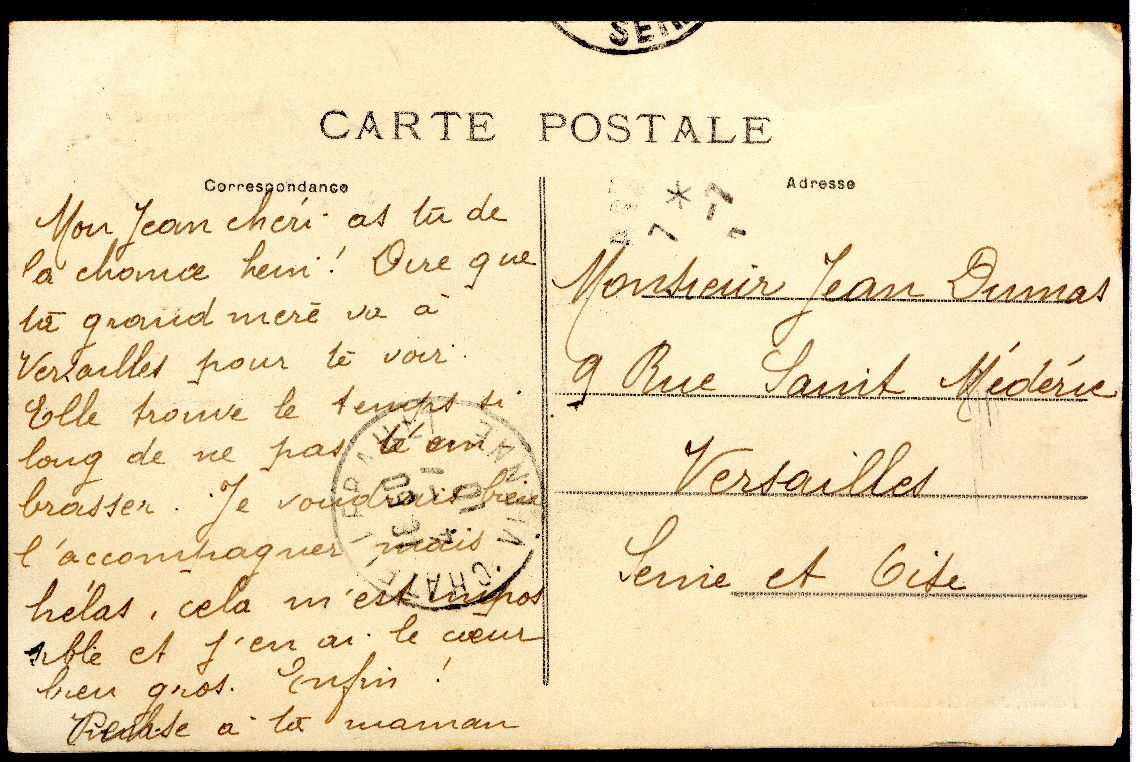 CARTE POSTALE
Correspondance
Mon Jean chéri. as tu de
la chance hein! Dire que
ta grand mère va à
Versailles pour te voir.
Elle trouve le temps si
long de ne pas t'em
brasser. Je voudrais bien
l'accompagner mais
hélas, cela m'est impos
sible et j'en ai le cœur
bien gros. Enfin!
Pense à ta maman
Adresse
7 * -7
Monsieur Jean Dumas
9 Rue Saint Médéric
Versailles
Seine et Oise